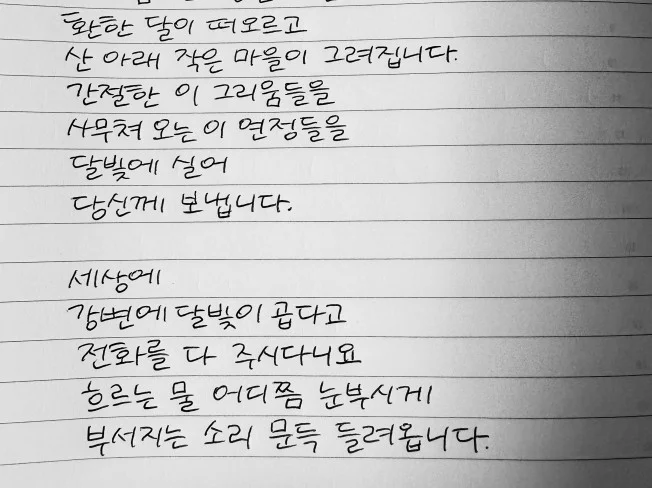 환한 달이 떠오르고
산 아래 작은 마을이 그려집니다.
간절한 이 그리움들을
사무쳐 오는 이 연정들을
달빛에 실어
당신께 보냅니다.
세상에
강변에 달빛이 곱다고
전화를 다 주시다니요
흐르는 물 어디쯤 눈부시게
부서지는 소리 문득 들려옵니다.